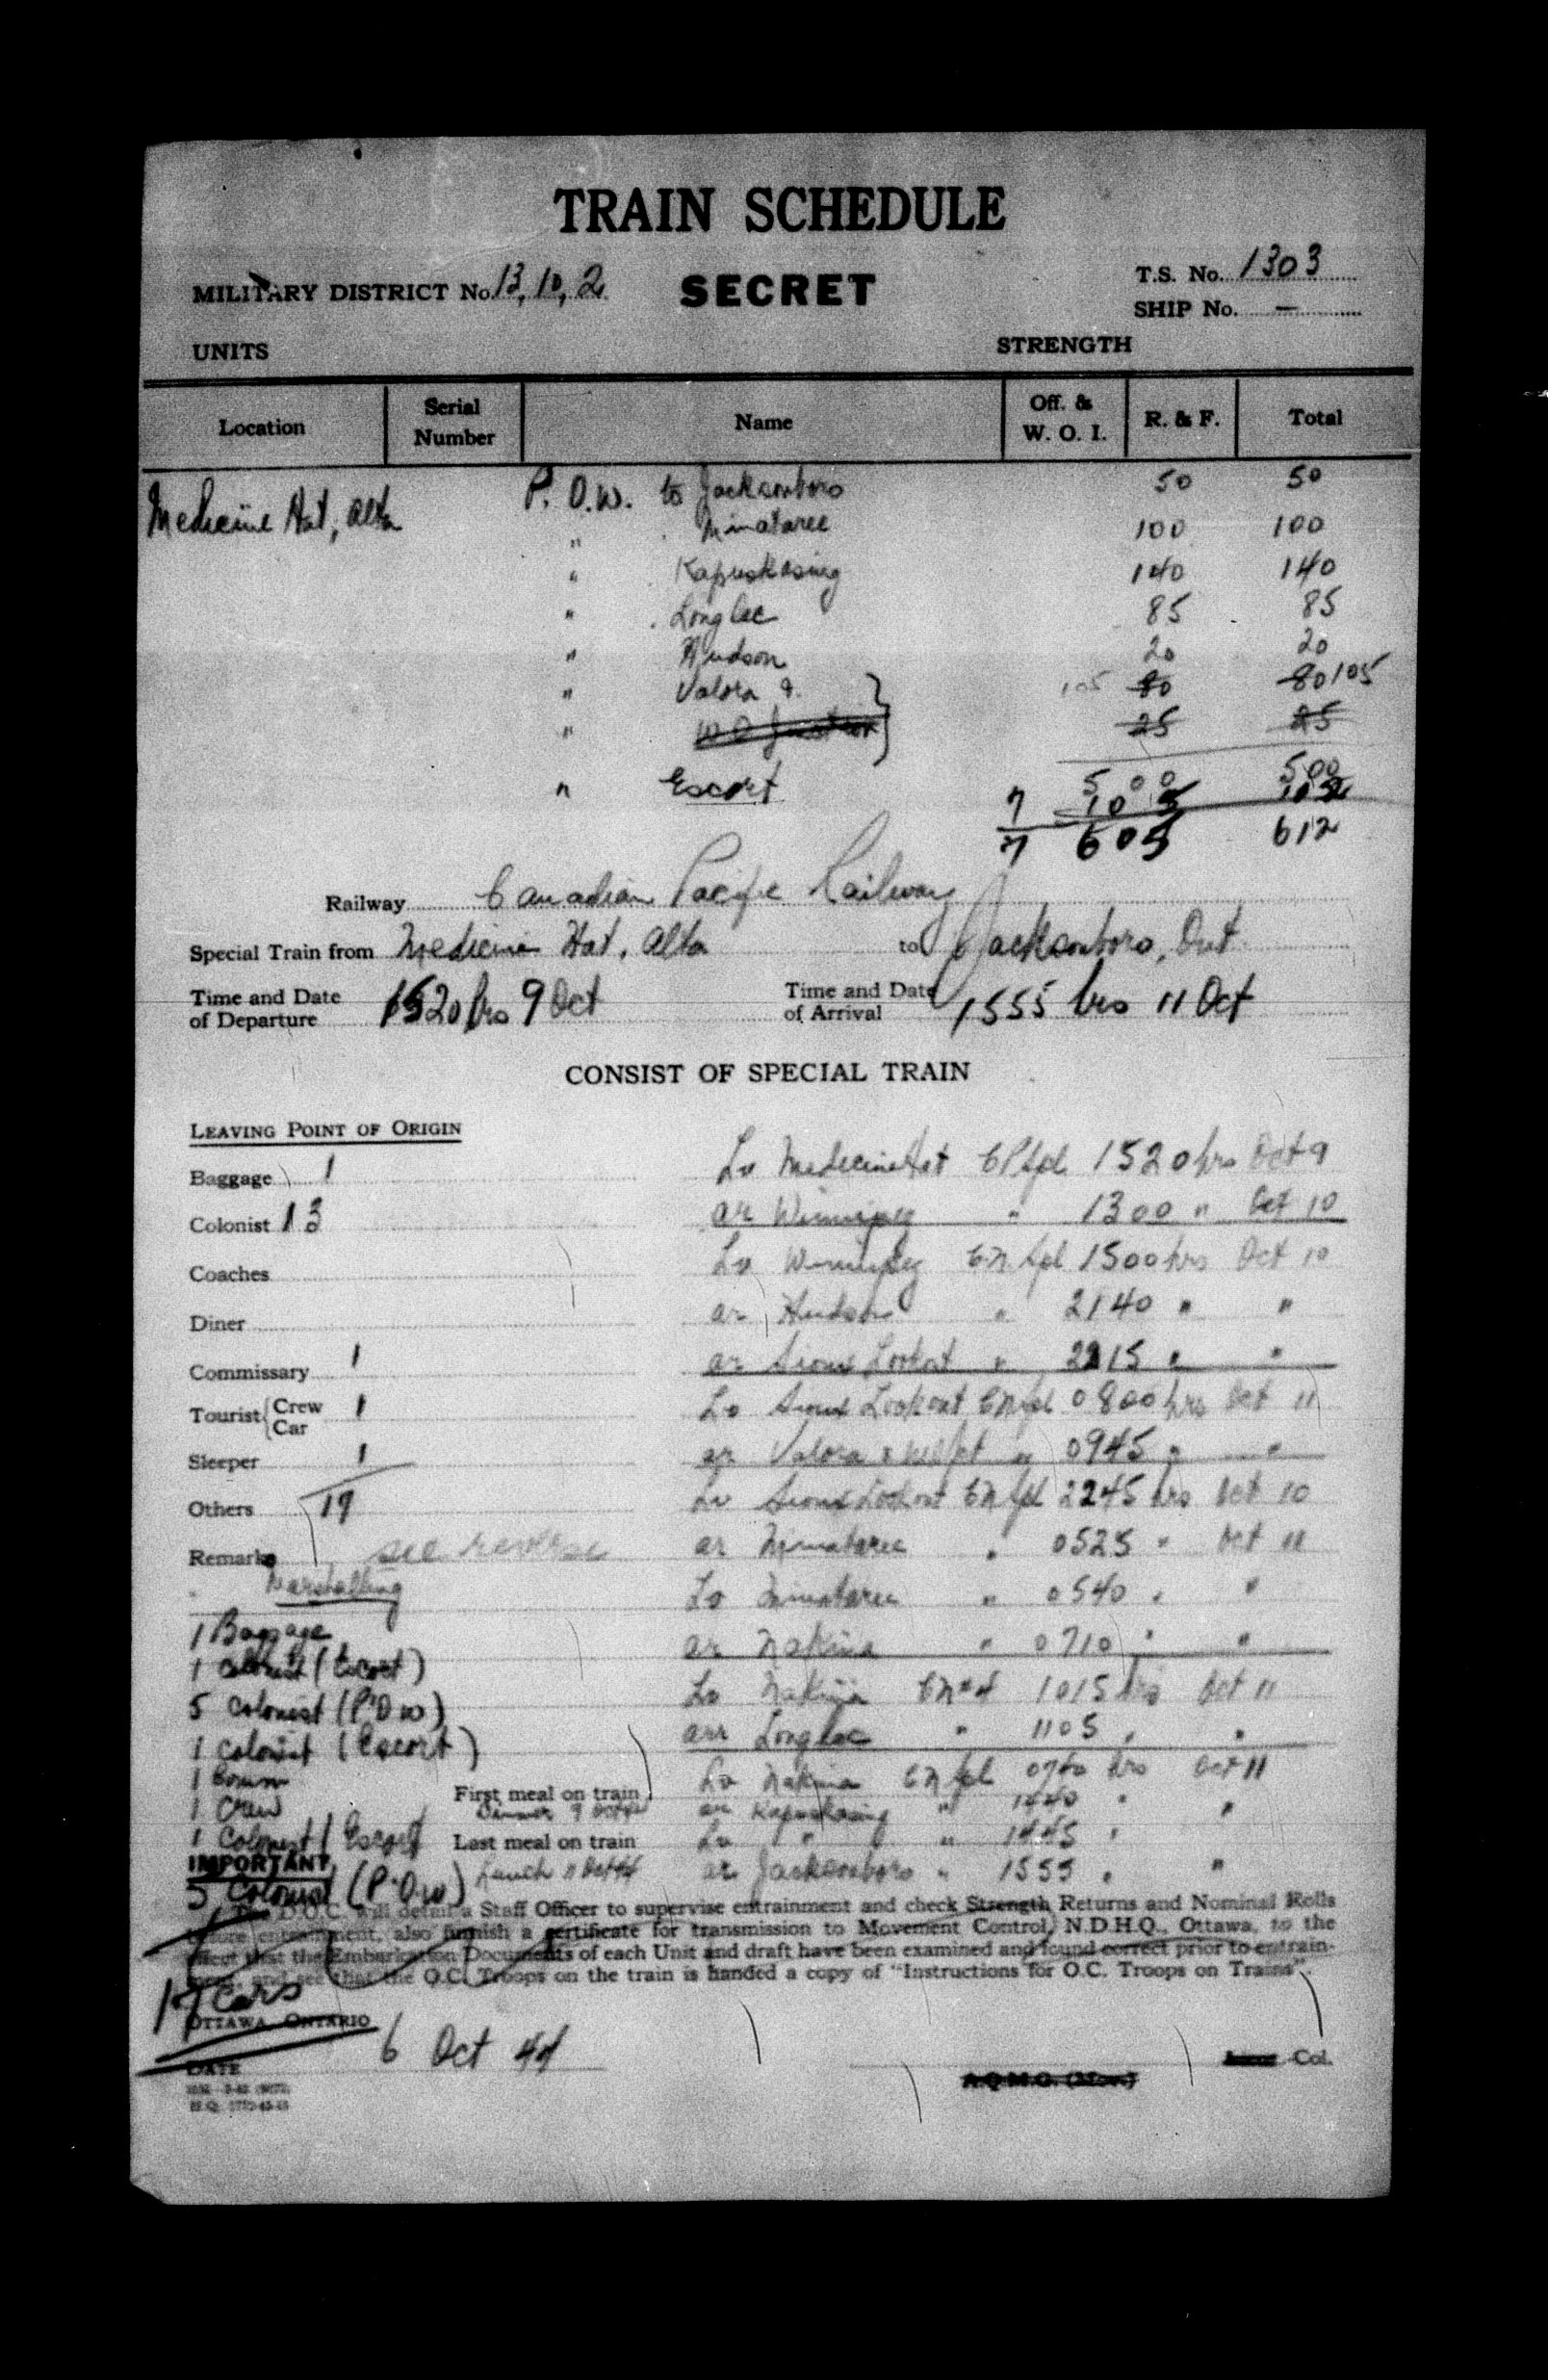 TRAIN SCHEDULE
MILITARY DISTRICT No. 13, 10, 2 SECRET T.S. No. 1303
SHIP No. —
UNITS STRENGTH
Location Serial Number Name Off. & W. O. I. R. & F. Total
Medicine Hat, Alta P. O.W. to Jacksonboro 50 50
" Minataree 100 100
" Kapuskasing 140 140
" Longlac 85 85
" Hudson 20 20
" Valora & 105 80 80 105
" 25 25
500 500
" Escort 7 105
7 605 612
Railway Canadian Pacific Railway
Special Train from Medicine Hat, Alta to Jacksonboro, Ont
Time and Date of Departure 1520 hrs 9 Oct Time and Date of Arrival 1555 hrs 11 Oct
CONSIST OF SPECIAL TRAIN
LEAVING POINT OF ORIGIN
Baggage 1
Colonist 13
Coaches
Diner
Commissary 1
Tourist { Crew Car 1
Sleeper 1
Others 17
Remarks see reverse
Marshalling
1 Baggage
1 Colonist (Escort)
5 Colonist (P.O.W)
1 Colonist (Escort)
1 Comm
1 Crew
1 Colonist (Escort)
5 Colonist (P.O.W)
17 Cars
Lv Medicine Hat CP 1520 hrs Oct 9
ar Winnipeg " 1300 " Oct 10
Lv Winnipeg CN 1500 hrs Oct 10
ar Hudson " 2140 " "
ar Sioux Lookout " 2215 " "
Lv Sioux Lookout CN 0800 hrs Oct 11
ar Valora & " 0945 " "
Lv Sioux Lookout CN 2245 hrs Oct 10
ar Minataree " 0525 " Oct 11
Lv Minataree " 0540 " "
ar Nakina " 0710 " "
Lv Nakina CN 1015 hrs Oct 11
arr Longlac " 1105 " "
Lv Nakina CN hrs Oct 11
ar Kapuskasing " 1440 " "
Lv " " 1445 "
ar Jacksonboro " 1555 " "
First meal on train
Dinner 9 Oct
Last meal on train
Lunch 11 Oct 44
IMPORTANT
The D.O.C. will detail a Staff Officer to supervise entrainment and check Strength Returns and Nominal Rolls
before entrainment, also furnish a certificate for transmission to Movement Control, N.D.H.Q., Ottawa, to the
effect that the Embarkation Documents of each Unit and draft have been examined and found correct prior to entrain-
ment, and see that the O.C. Troops on the train is handed a copy of "Instructions for O.C. Troops on Trains".
OTTAWA, ONTARIO
DATE 6 Oct 44
A.Q.M.G. (Mov.) Col.